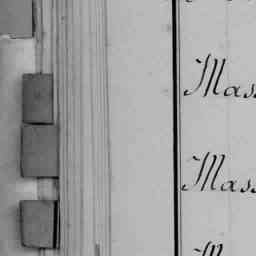 Mass
Mass
M